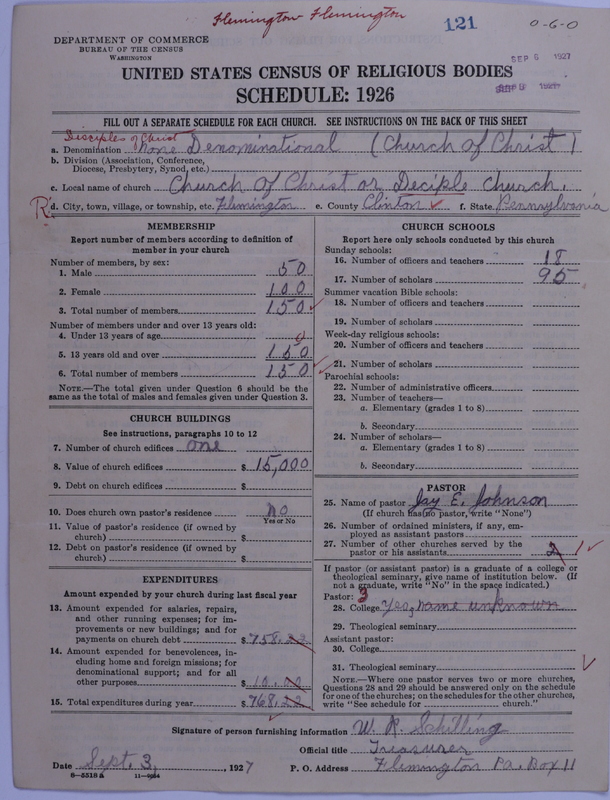 Flemington Flemington
121
0-6-0
DEPARTMENT OF COMMERCE
BUREAU OF THE CENSUS
WASHINGTON
SEP 6 1927
UNITED STATES CENSUS OF RELIGIOUS BODIES
SCHEDULE: 1926
FILL OUT A SEPARATE SCHEDULE FOR EACH CHURCH. SEE INSTRUCTIONS ON THE BACK OF THIS SHEET
Disciples of Christ
a. Denomination None Denominational (Church of Christ)
b. Division (Association, Conference, Diocese, Presbytery, Synod, etc.)
c. Local name of church Church Of Christ or Deciple Church.
R. d. City, town, village, or township, etc. Flemington e. County Clinton ✓ f. State Pennsylvania
MEMBERSHIP
Report number of members according to definition of
member in your church
Number of members, by sex:
1. Male 50
2. Female 100
3. Total number of members 150 ✓
Number of members under and over 13 years old:
4. Under 13 years of age
5. 13 years old and over 150
6. Total number of members 150 ✓
NOTE.—The total given under Question 6 should be the
same as the total of males and females given under Question 3.
CHURCH BUILDINGS
See instructions, paragraphs 10 to 12
7. Number of church edifices one
8. Value of church edifices $ 15,000
9. Debt on church edifices $
10. Does church own pastor's residence No
Yes or No
11. Value of pastor's residence (if owned by
church) $
12. Debt on pastor's residence (if owned by
church) $
EXPENDITURES
Amount expended by your church during last fiscal year
13. Amount expended for salaries, repairs,
and other running expenses; for im-
provements or new buildings; and for
payments on church debt $ 758.22
14. Amount expended for benevolences, in-
cluding home and foreign missions; for
denominational support; and for all
other purposes $ 10.00
15. Total expenditures during year $ 768.22
CHURCH SCHOOLS
Report here only schools conducted by this church
Sunday schools:
16. Number of officers and teachers 18
17. Number of scholars 95
Summer vacation Bible schools:
18. Number of officers and teachers
19. Number of scholars
Week-day religious schools:
20. Number of officers and teachers
21. Number of scholars
Parochial schools:
22. Number of administrative officers
23. Number of teachers—
a. Elementary (grades 1 to 8)
b. Secondary
24. Number of scholars—
a. Elementary (grades 1 to 8)
b. Secondary
PASTOR
25. Name of pastor Jay E. Johnson
(If church has no pastor, write "None")
26. Number of ordained ministers, if any, em-
ployed as assistant pastors
27. Number of other churches served by the
pastor or his assistants 2 1 ✓
If pastor (or assistant pastor) is a graduate of a college or
theological seminary, give name of institution below. (If
not a graduate, write "No" in the space indicated.)
Pastor: 3
28. College Yes, name unknown
29. Theological seminary
Assistant pastor:
30. College
31. Theological seminary ✓
NOTE.—Where one pastor serves two or more churches,
Questions 28 and 29 should be answered only on the schedule
for one of the churches; on the schedules for the other churches,
write "See schedule for church."
Signature of person furnishing information W. R. Schilling
Official title Treasurer
Date Sept. 3, 1927 P. O. Address Flemington Pa. Box 11
8—5518a 11—9064